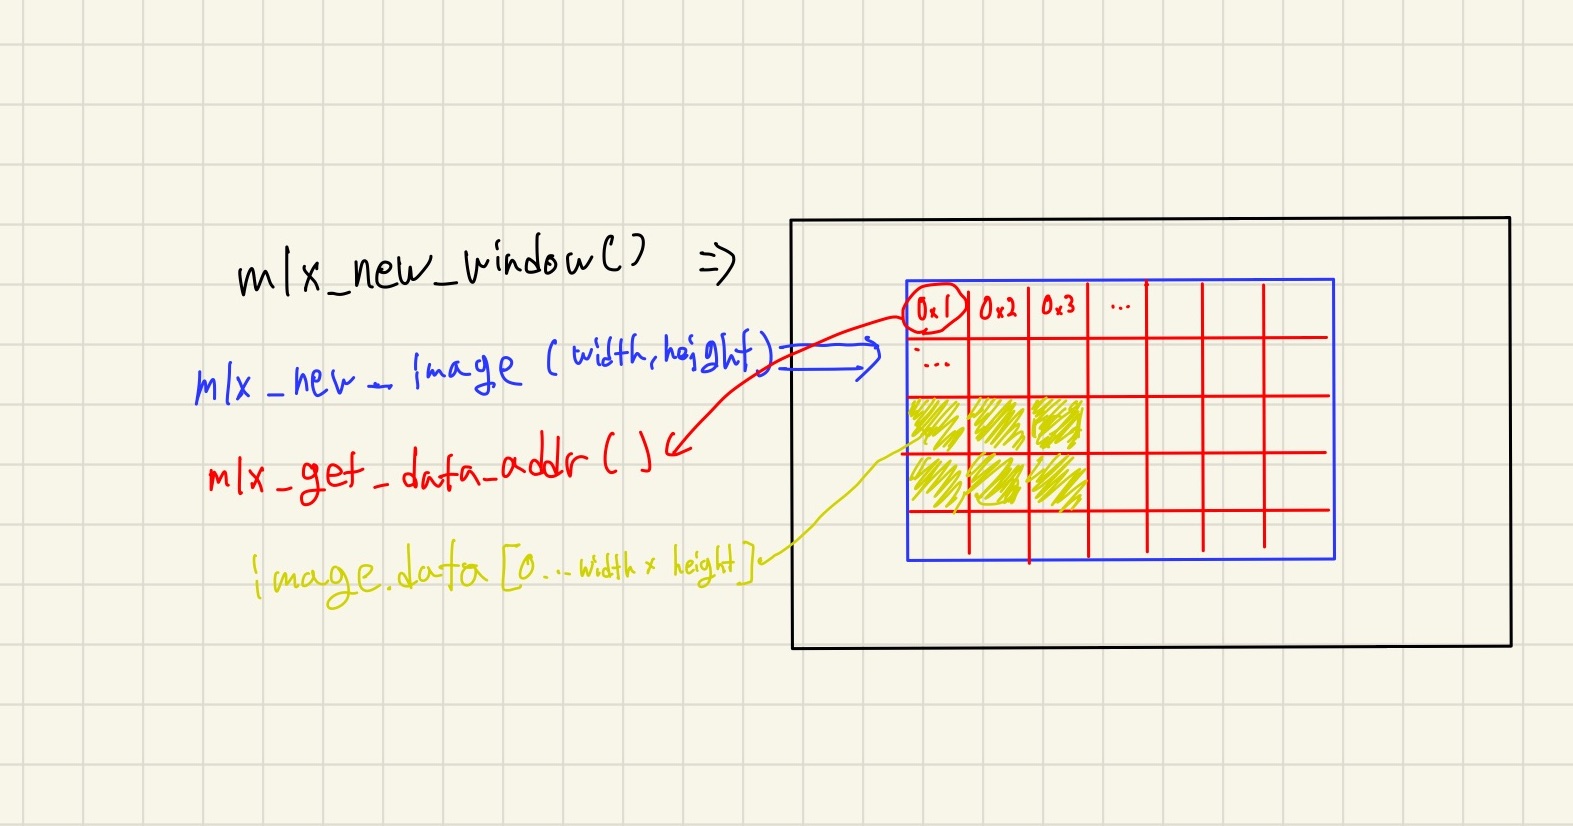 mlx_new_window() =>
mlx_new_image (width, height)
mlx_get_data_addr()
image.data[0...width x height]
0x1 0x2 0x3 ...
...